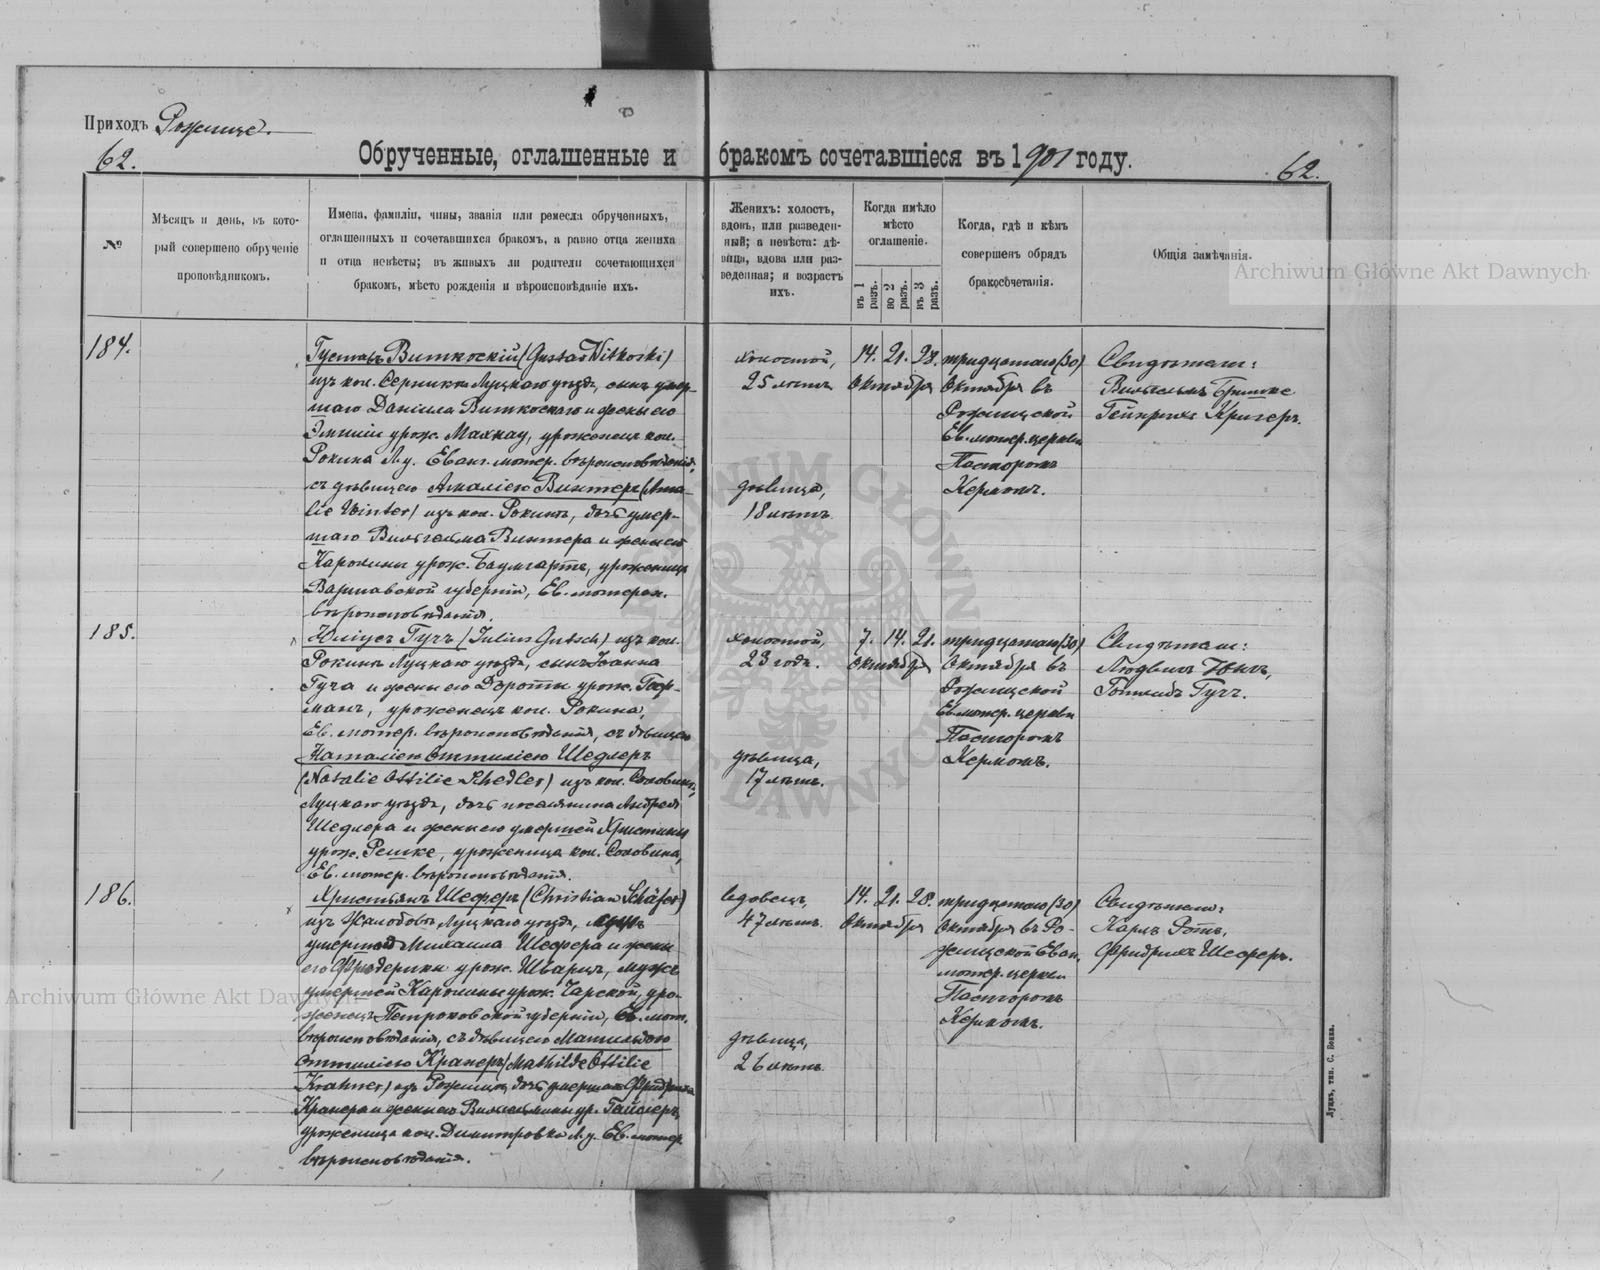 Приходъ Рожище.
62.
Обрученные, оглашенные и бракомъ сочетавшіеся въ 1901 году.
62.
№
Мѣсяцъ и день, въ кото-
рый совершено обрученіе
проповѣдникомъ.
Имена, фамиліи, чины, званія или ремесла обрученныхъ,
оглашенныхъ и сочетавшихся бракомъ, а равно отца жениха
и отца невѣсты; въ живыхъ ли родители сочетающихся
бракомъ, мѣсто рожденія и вѣроисповѣданіе ихъ.
Женихъ: холостъ,
вдовъ, или разведен-
ный; а невѣста: дѣ-
вица, вдова или раз-
веденная; и возрастъ
ихъ.
Когда имѣло
мѣсто
оглашеніе.
въ 1 разъ.
во 2 разъ.
въ 3 разъ.
Когда, гдѣ и кѣмъ
совершенъ обрядъ
бракосочетанія.
Общія замѣчанія.
Archiwum Główne Akt Dawnych
184.
Густавъ Виткоскій (Gustav Witkoski)
изъ кол. Серники Луцкаго уѣзда, сынъ умер-
шаго Даніила Виткоскаго и жены его
Эмиліи урож. Махнау, уроженецъ кол.
Рокина Л. у. Еванг. лютер. вѣроисповѣданія,
съ дѣвицею Амаліею Винтеръ (Ama-
lie Winter) изъ кол. Рокинъ, дочь умер-
шаго Вильгельма Винтера и жены его
Каролины урож. Баумгартъ, уроженица
Варшавской губерніи, Ев. лютеран.
вѣроисповѣданія.
холостой,
25 лѣтъ.
дѣвица,
18 лѣтъ.
14. 21. 28.
Октября
тридцатаго (30)
Октября въ
Рожищской
Ев. лютер. церкви
Пасторомъ
Керномъ.
Свидѣтели:
Вильгельмъ
Гейнрихъ Кригеръ.
185.
Юліусъ Гучъ (Julius Gutsch) изъ кол.
Рокинъ Луцкаго уѣзда, сынъ Іоанна
Гуча и жены его Доротты урож. Гер-
манъ, уроженецъ кол. Рокина,
Ев. лютер. вѣроисповѣданія, съ дѣвицею
Наталіею Оттиліею Шедлеръ
(Natalie Ottilie Schedler) изъ кол.
Луцкаго уѣзда, дочь поселянина Андрея
Шедлера и жены его умершей Христины
урож. Решке, уроженица кол.
Ев. лютер. вѣроисповѣданія.
холостой,
23 годъ.
дѣвица,
17 лѣтъ.
7. 14. 21.
Октября
тридцатаго (30)
Октября въ
Рожищской
Ев. лютер. церкви
Пасторомъ
Керномъ.
Свидѣтели:
Людвигъ
Готлибъ Гучъ.
186.
Христьянъ Шеферъ (Christian Schäfer)
изъ Жалобовъ Луцкаго уѣзда, сынъ
умершаго Михаила Шефера и жены
его Фридерики урож. Шварцъ, мужъ
умершей Каролины урож. Чарской, уро-
женецъ Петроковской губерніи, Ев. лют.
вѣроисповѣданія, съ дѣвицею Матильдою
Оттиліею Кранеръ (Mathilde Ottilie
Krahner) изъ Рожищъ, дочь умершаго Фридриха
Кранера и жены его Вильгельмины ур. Гайслеръ,
уроженица кол. Димитровка Л. у. Ев. лютер.
вѣроисповѣданія.
вдовецъ,
47 лѣтъ.
дѣвица,
26 лѣтъ.
14. 21. 28.
Октября
тридцатаго (30)
Октября въ Ро-
жищской Еван.
лютер. церкви
Пасторомъ
Керномъ.
Свидѣтели:
Карлъ Ротъ,
Фридрихъ Шеферъ.
Archiwum Główne Akt Dawnych
Луцкъ, тип. С. Бекка.
ARCHIWUM GŁÓWNE AKT DAWNYCH